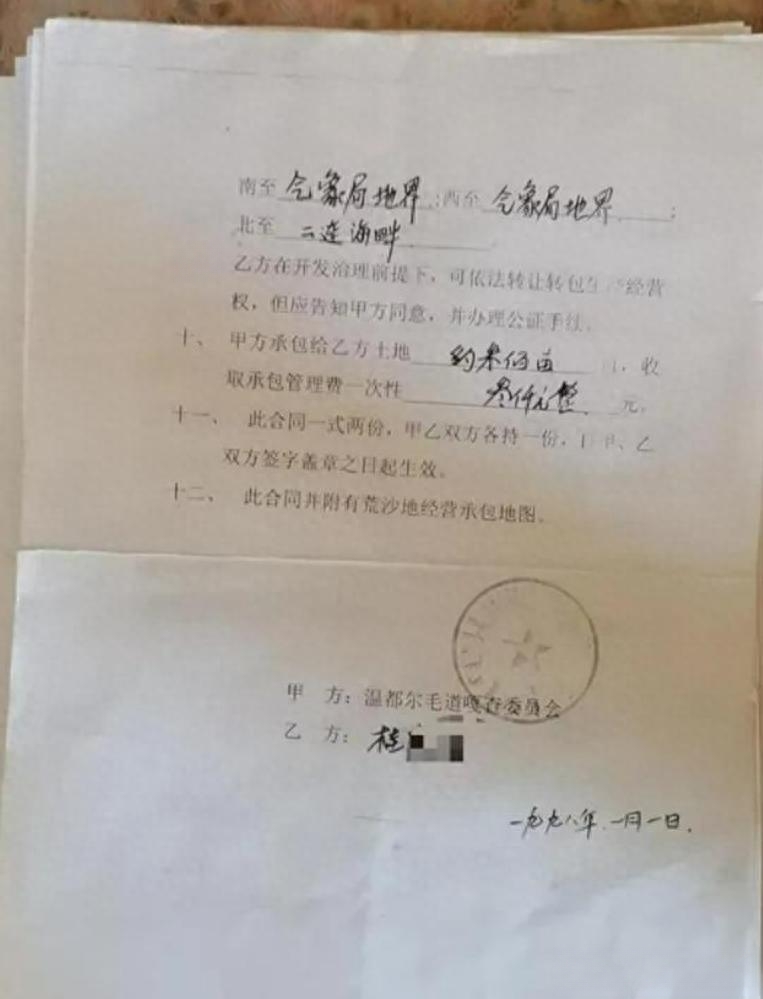 南至 气象局地界 ;西至 气象局地界 ;
北至 二连海畔
乙方在开发治理前提下,可依法转让转包 经营
权,但应告知甲方同意,并办理公证手续。
十、 甲方承包给乙方土地 约 亩 ,收
取承包管理费一次性 叁仟元整 元。
十一、 此合同一式两份,甲乙双方各持一份, 甲、乙
双方签字盖章之日起生效。
十二、 此合同并附有荒沙地经营承包地图。
甲 方: 温都尔毛道嘎查委员会
乙 方: 桂
一九九八年.一月一日.